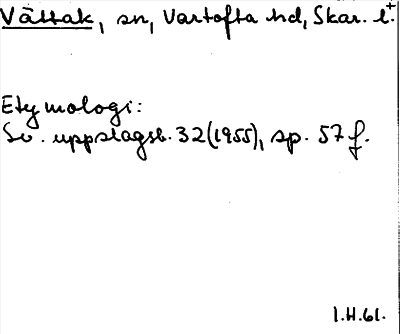 Vättak, sn, Vartofta hd, Skar. l.+
Etymologi:
Sv. uppslagsb. 32 (1955), sp. 57 f.
1.H.61.